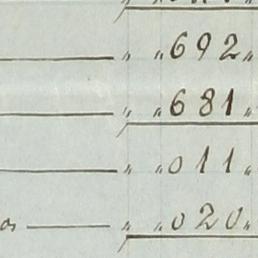 " " 692 "
" " 681 "
" " 011 "
os " " 020 "